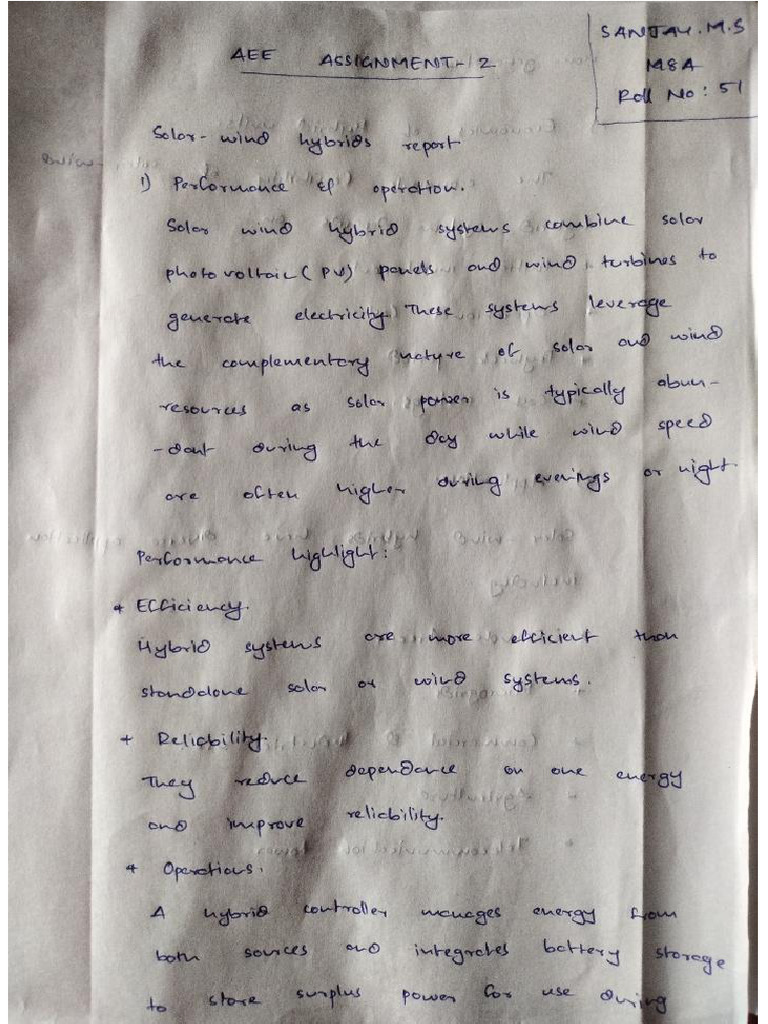 SANJAY.M.S
M8A
Roll No: 51
AEE ASSIGNMENT-2
Solar-wind hybrids report
1) Performance & operation.
Solar wind hybrid systems combine solar
photovoltaic (PV) panels and wind turbines to
generate electricity. These systems leverage
the complementary nature of solar and wind
resources as solar power is typically abun-
-dant during the day while wind speed
are often higher during evenings or night.
Performance highlight:
* Efficiency.
Hybrid systems are more efficient than
standalone solar or wind systems.
* Reliability.
They reduce dependance on one energy
and improve reliability.
* Operations.
A hybrid controller manages energy from
both sources and integrates battery storage
to store surplus power for use during